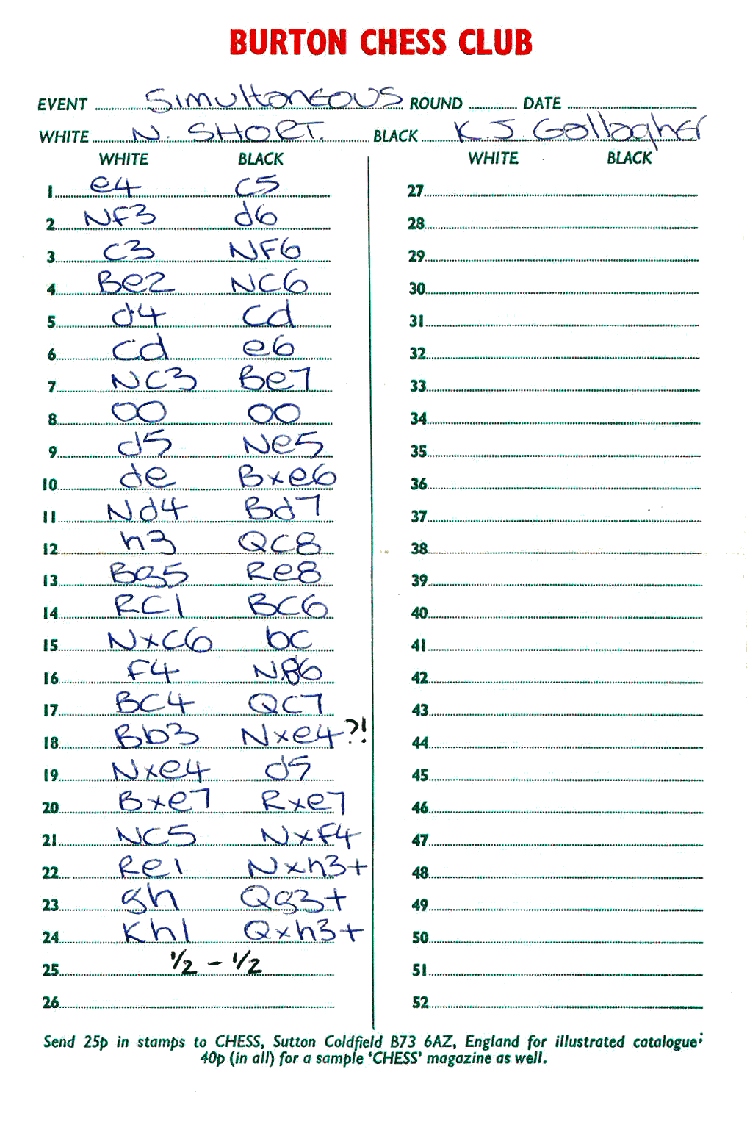 BURTON CHESS CLUB
EVENT Simultaneous ROUND DATE
WHITE N. SHORT. BLACK K J Gallagher
WHITE BLACK WHITE BLACK
1 e4 c5 27
2 NF3 d6 28
3 C3 NF6 29
4 Be2 NC6 30
5 d4 cd 31
6 cd e6 32
7 NC3 Be7 33
8 OO OO 34
9 d5 Ne5 35
10 de Bxe6 36
11 Nd4 Bd7 37
12 h3 QC8 38
13 Bg5 Re8 39
14 RC1 BC6 40
15 NxC6 bc 41
16 F4 Ng6 42
17 BC4 QC7 43
18 Bb3 Nxe4?! 44
19 Nxe4 d5 45
20 Bxe7 Rxe7 46
21 NC5 NxF4 47
22 Re1 Nxh3+ 48
23 gh Qg3+ 49
24 Kh1 Qxh3+ 50
25 1/2 - 1/2 51
26 52
Send 25p in stamps to CHESS, Sutton Coldfield B73 6AZ, England for illustrated catalogue;
40p (in all) for a sample 'CHESS' magazine as well.